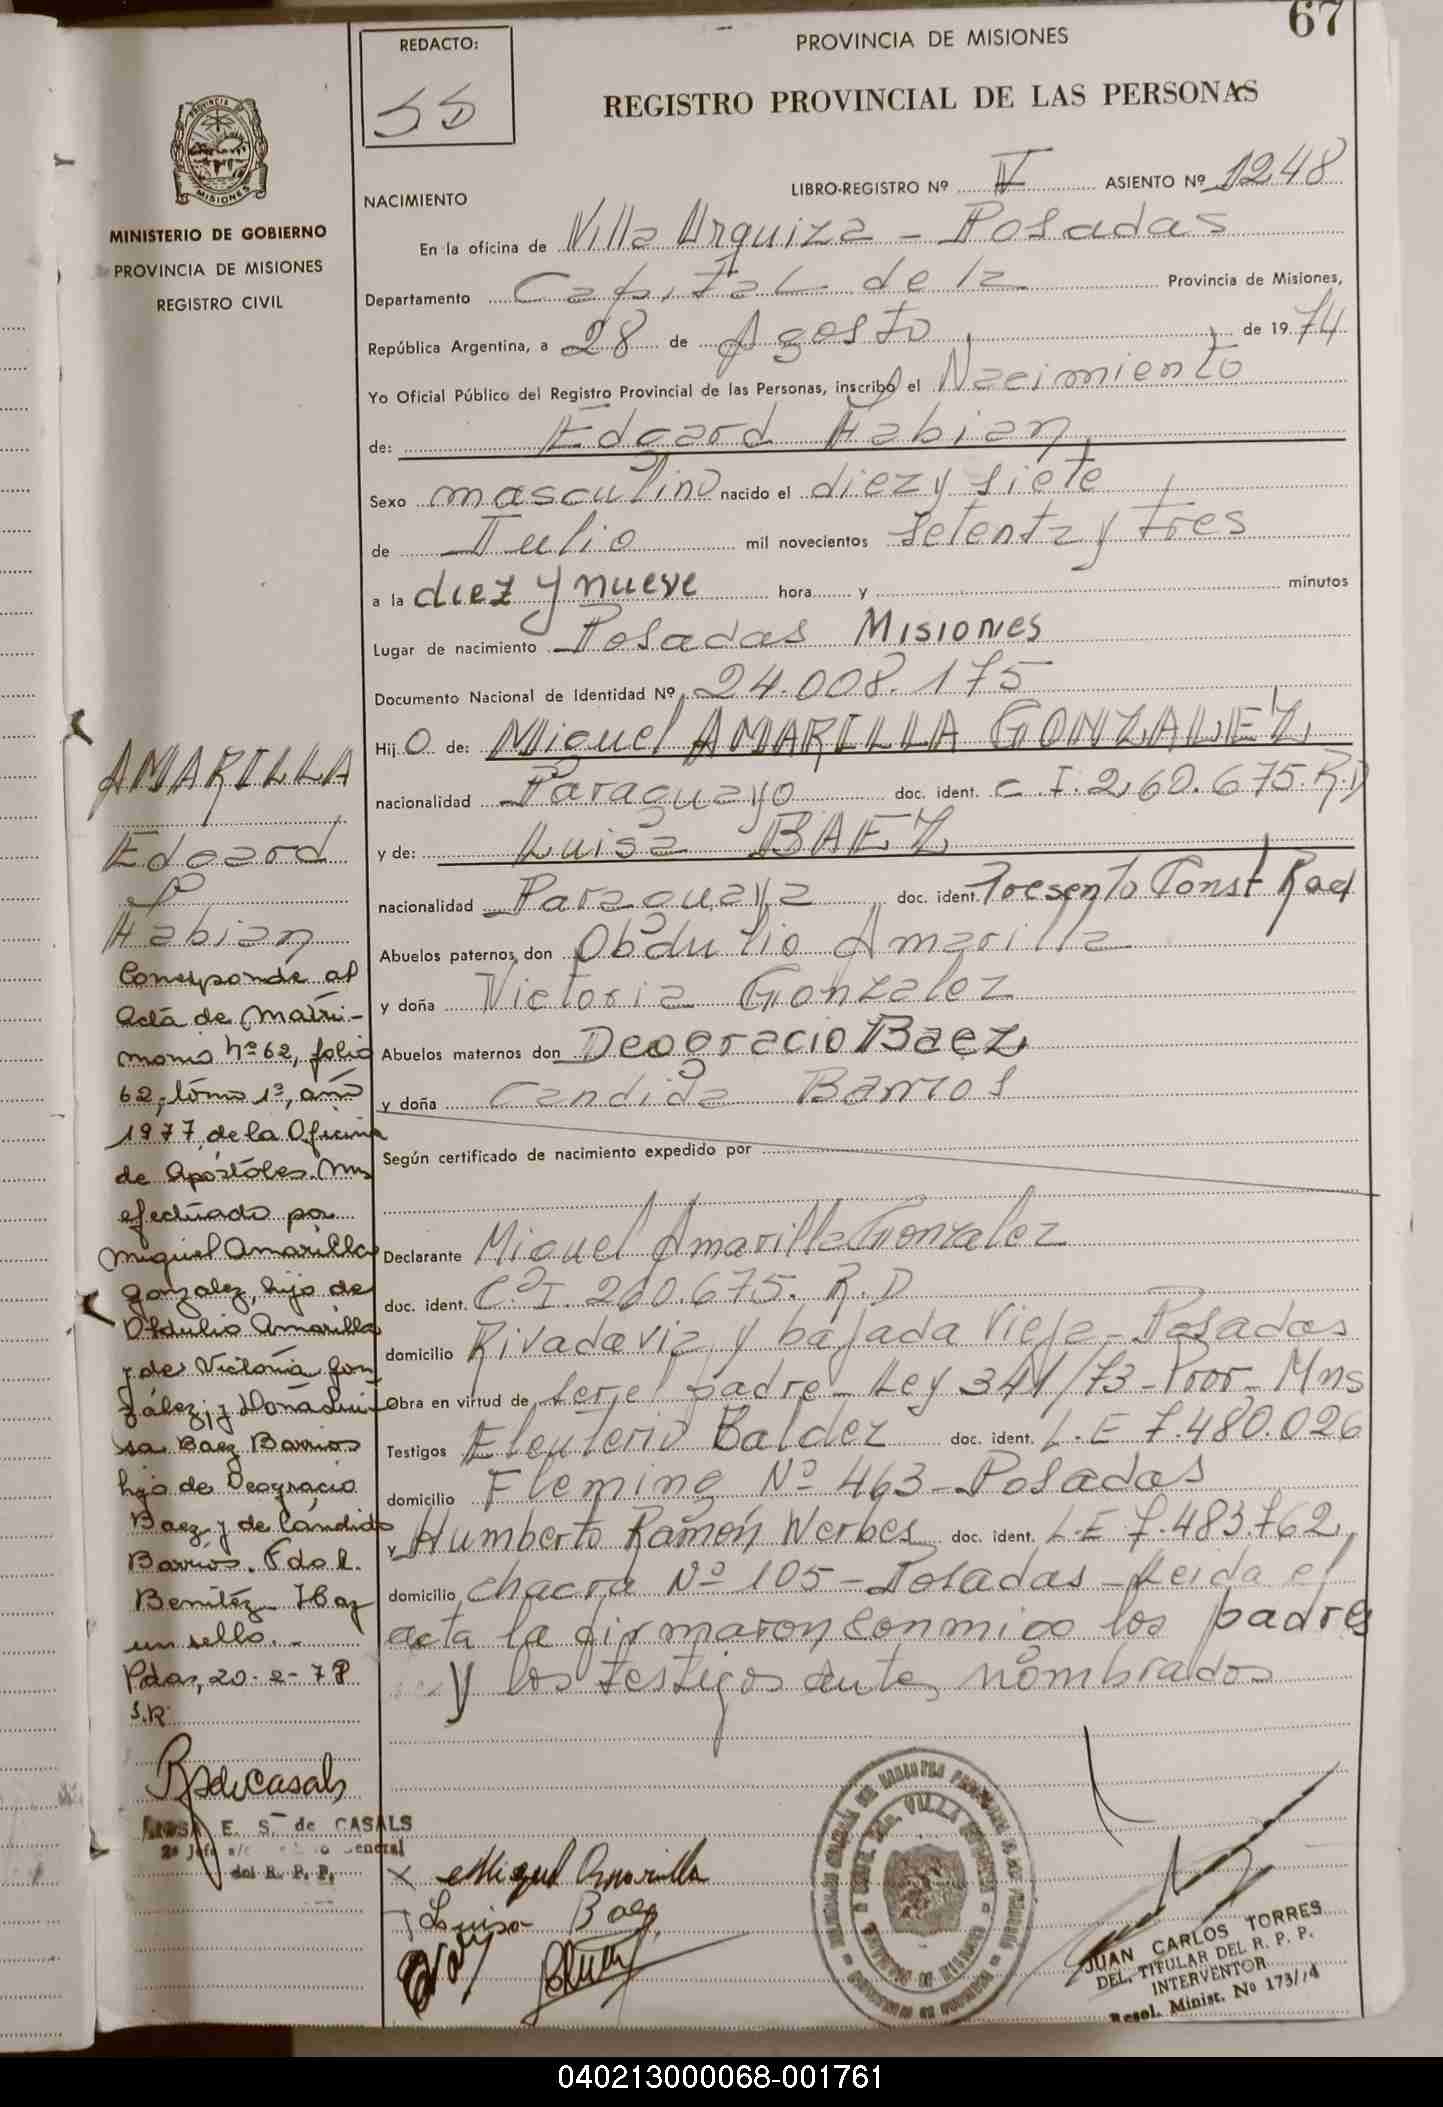 67
REDACTO:
PROVINCIA DE MISIONES
REGISTRO PROVINCIAL DE LAS PERSONAS
PROVINCIA DE
MISIONES
MINISTERIO DE GOBIERNO
PROVINCIA DE MISIONES
REGISTRO CIVIL
LIBRO-REGISTRO Nº IV ASIENTO Nº 1248
NACIMIENTO
En la oficina de Villa Urquiza - Posadas
Departamento Capital de la Provincia de Misiones,
República Argentina, a 28 de Agosto de 1974
Yo Oficial Público del Registro Provincial de las Personas, inscribo el Nacimiento
de: Edgard Fabian
Sexo masculino nacido el diez y siete
de Julio mil novecientos setenta y tres
a la diez y nueve hora y minutos
Lugar de nacimiento Posadas Misiones
Documento Nacional de Identidad Nº 24.008.175
Hijo de: Miguel AMARILLA GONZALEZ
nacionalidad Paraguayo doc. ident. C.I. 260.675. R.D
y de: Luisa BAEZ
nacionalidad Paraguaya doc. ident. Presento Const Rad
Abuelos paternos, don Obdulio Amarilla
y doña Victoria Gonzalez
Abuelos maternos don Deogracio Baez
y doña Candida Barrios
Según certificado de nacimiento expedido por
Declarante Miguel Amarilla Gonzalez
doc. ident. C.I. 260.675. R.D
domicilio Rivadavia y bajada Vieja - Posadas
Obra en virtud de ser el padre - Ley 341/73 - Pror - Mns
Testigos Eleuterio Baldez doc. ident. L.E 7.480.026
domicilio Fleming Nº 463 - Posadas
y Humberto Ramón Werbes doc. ident. L.E 7.483.762
domicilio chacra Nº 105 - Posadas - Leida el
acta la firmaron conmigo los padres
y los testigos antes nombrados
AMARILLA
Edgard
Fabian
Corresponde al
Acta de Matri-
monio Nº 62, folio
62, tomo 1º, año
1977, de la Oficina
de Apóstoles. Mns
efectuado por
Miguel Amarilla
Gonzalez, hijo de
Obdulio Amarilla
y de Victoria Gon
zález; y Doña Lui-
sa Baez Barrios
hija de Deogracio
Baez y de Cándida
Barrios. Fdo l.
Benítez. Hay
un sello.
Pdas, 20-2-78
S.R
RSdeCasals
E. S. de CASALS
del R. P. P.
Miguel Amarilla
Luisa Baez
JUAN CARLOS TORRES
DEL. TITULAR DEL R. P. P.
INTERVENTOR
Resol. Minist. Nº 173/74
040213000068-001761